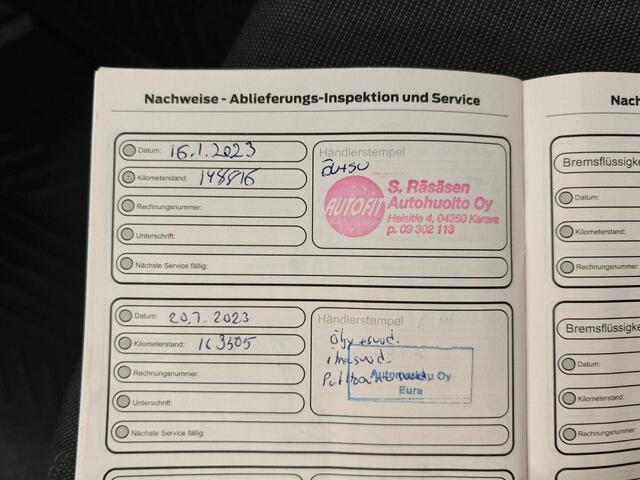 Nachweise - Ablieferungs-Inspektion und Service
Datum: 16.1.2023
Kilometerstand: 148816
Rechnungsnummer:
Unterschrift:
Nächste Service fällig:
Händlerstempel
AUTOFIT
S. Räsäsen
Autohuolto Oy
Helsitie 4, 04260 Kerava
p. 09 302 113
Datum: 20.7.2023
Kilometerstand: 163505
Rechnungsnummer:
Unterschrift:
Nächste Service fällig:
Händlerstempel
Oy
Eura
Nach
Bremsflüssigke
Datum:
Kilometerstand:
Rechnungsnummer:
Bremsflüssigke
Datum:
Kilometerstand:
Rechnungsnummer: